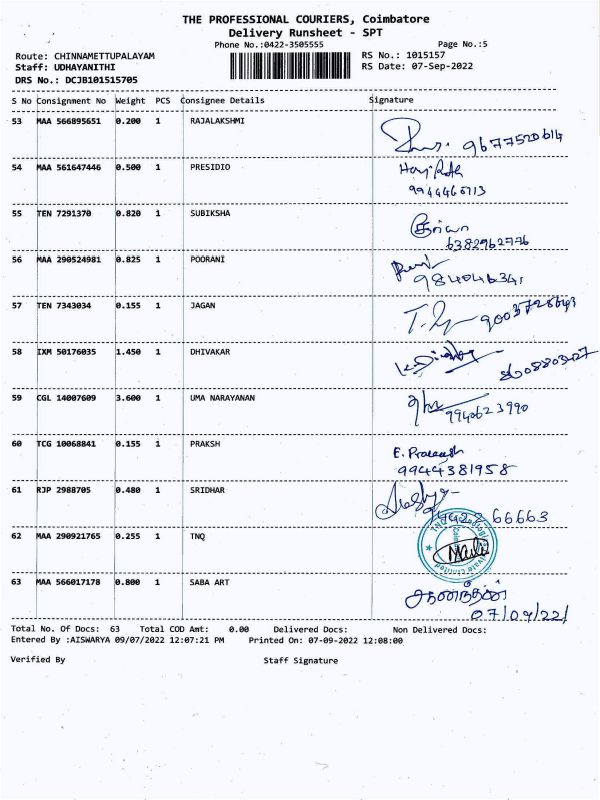 THE PROFESSIONAL COURIERS, Coimbatore
Delivery Runsheet - SPT
Phone No.:0422-3505555 Page No.:5
Route: CHINNAMETTUPALAYAM RS No.: 1015157
Staff: UDHAYANITHI RS Date: 07-Sep-2022
DRS No.: DCJB101515705
S No Consignment No Weight PCS Consignee Details Signature
53 MAA 566895651 0.200 1 RAJALAKSHMI
9677520614
54 MAA 561647446 0.500 1 PRESIDIO
9944466113
55 TEN 7291370 0.820 1 SUBIKSHA
6382962776
56 MAA 290524981 0.825 1 POORANI
984046341
57 TEN 7343034 0.155 1 JAGAN
58 IXM 50176035 1.450 1 DHIVAKAR
59 CGL 14007609 3.600 1 UMA NARAYANAN
9940623990
60 TCG 10068841 0.155 1 PRAKSH
E. Prakash
9944381958
61 RJP 2988705 0.480 1 SRIDHAR
66663
62 MAA 290921765 0.255 1 TNQ
63 MAA 566017178 0.800 1 SABA ART
07/09/22/
Total No. Of Docs: 63 Total COD Amt: 0.00 Delivered Docs: Non Delivered Docs:
Entered By :AISWARYA 09/07/2022 12:07:21 PM Printed On: 07-09-2022 12:08:00
Verified By Staff Signature